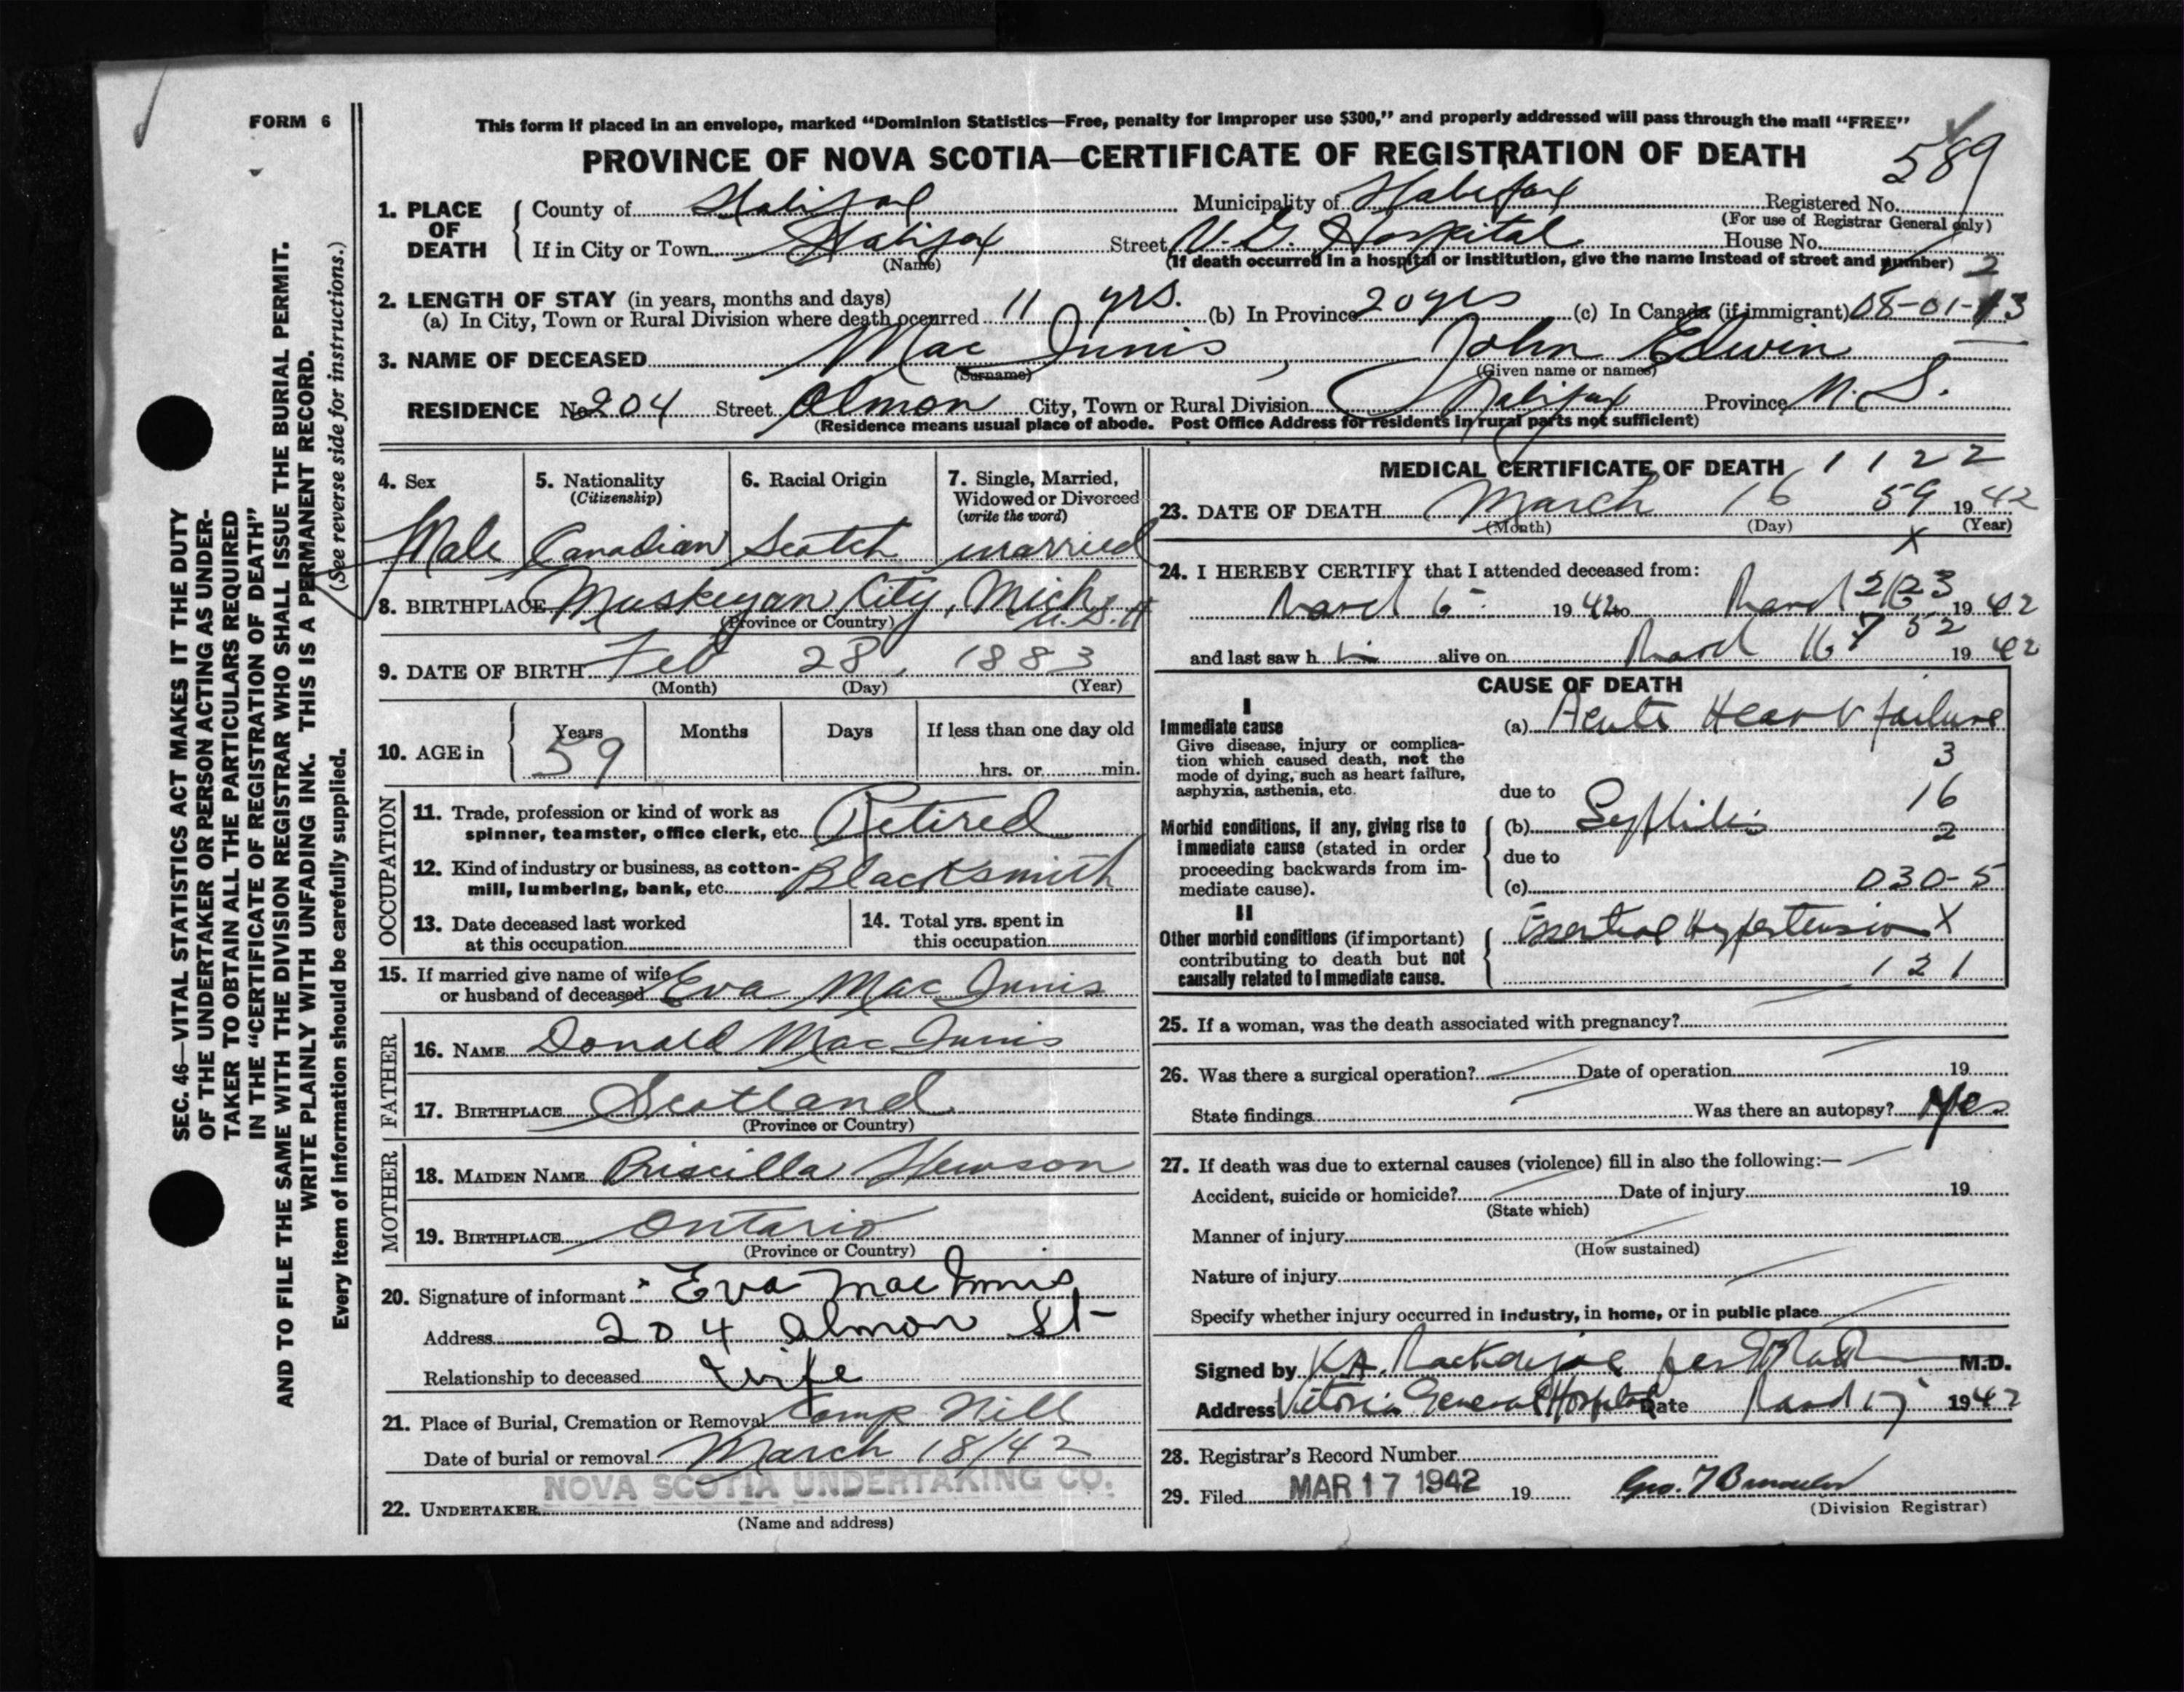 FORM 6
This form if placed in an envelope, marked “Dominion Statistics—Free, penalty for improper use $300,” and properly addressed will pass through the mail “FREE”
PROVINCE OF NOVA SCOTIA—CERTIFICATE OF REGISTRATION OF DEATH
589
1. PLACE OF DEATH
County of Halifax Municipality of Halifax Registered No.
(For use of Registrar General only)
If in City or Town Halifax Street V. G. Hospital House No.
(Name) (If death occurred in a hospital or institution, give the name instead of street and number) 2
2. LENGTH OF STAY (in years, months and days)
(a) In City, Town or Rural Division where death occurred 11 yrs. (b) In Province 20 yrs (c) In Canada (if immigrant) 08-01-13
3. NAME OF DECEASED Mac Innis, John Edwin
(Surname) (Given name or names)
RESIDENCE No. 204 Street Almon City, Town or Rural Division Halifax Province N. S.
(Residence means usual place of abode. Post Office Address for residents in rural parts not sufficient)
4. Sex
Male
5. Nationality
(Citizenship)
Canadian
6. Racial Origin
Scotch
7. Single, Married,
Widowed or Divorced
(write the word)
married
8. BIRTHPLACE Muskegan City, Mich
U.S.A
(Province or Country)
9. DATE OF BIRTH Feb 28, 1883
(Month) (Day) (Year)
10. AGE in
Years Months Days If less than one day old
59
hrs. or min.
OCCUPATION
11. Trade, profession or kind of work as
spinner, teamster, office clerk, etc. Retired
12. Kind of industry or business, as cotton-
mill, lumbering, bank, etc. Blacksmith
13. Date deceased last worked
at this occupation
14. Total yrs. spent in
this occupation
15. If married give name of wife
or husband of deceased Eva Mac Innis
FATHER
16. NAME Donald Mac Innis
17. BIRTHPLACE Scotland
(Province or Country)
MOTHER
18. MAIDEN NAME Priscilla Hewson
19. BIRTHPLACE Ontario
(Province or Country)
20. Signature of informant Eva MacInnis
Address 204 Almon St
Relationship to deceased Wife
21. Place of Burial, Cremation or Removal Camp Hill
Date of burial or removal March 18/42
NOVA SCOTIA UNDERTAKING CO.
22. UNDERTAKER
(Name and address)
MEDICAL CERTIFICATE OF DEATH 1122
23. DATE OF DEATH March 16 59 1942
(Month) (Day) (Year)
X
24. I HEREBY CERTIFY that I attended deceased from:
March 6 1942 to March 1942
and last saw h im alive on March 16 1942
CAUSE OF DEATH
I
Immediate cause
Give disease, injury or complica-
tion which caused death, not the
mode of dying, such as heart failure,
asphyxia, asthenia, etc.
(a) Acute Heart failure
3
due to
16
Morbid conditions, if any, giving rise to
immediate cause (stated in order
proceeding backwards from im-
mediate cause).
(b) Syphilis
2
due to
(c) 030-5
II
Other morbid conditions (if important)
contributing to death but not
causally related to immediate cause.
Essential Hypertension X
121
25. If a woman, was the death associated with pregnancy?
26. Was there a surgical operation? Date of operation 19
State findings Was there an autopsy? Yes
27. If death was due to external causes (violence) fill in also the following:—
Accident, suicide or homicide? Date of injury 19
(State which)
Manner of injury
(How sustained)
Nature of injury
Specify whether injury occurred in industry, in home, or in public place
Signed by K.A. M.D.
Address Victoria General Hospital Date March 17 1942
28. Registrar's Record Number
29. Filed MAR 17 1942 19
(Division Registrar)
SEC. 46—VITAL STATISTICS ACT MAKES IT THE DUTY
OF THE UNDERTAKER OR PERSON ACTING AS UNDER-
TAKER TO OBTAIN ALL THE PARTICULARS REQUIRED
IN THE “CERTIFICATE OF REGISTRATION OF DEATH”
AND TO FILE THE SAME WITH THE DIVISION REGISTRAR WHO SHALL ISSUE THE BURIAL PERMIT.
WRITE PLAINLY WITH UNFADING INK. THIS IS A PERMANENT RECORD.
Every item of information should be carefully supplied. (See reverse side for instructions.)